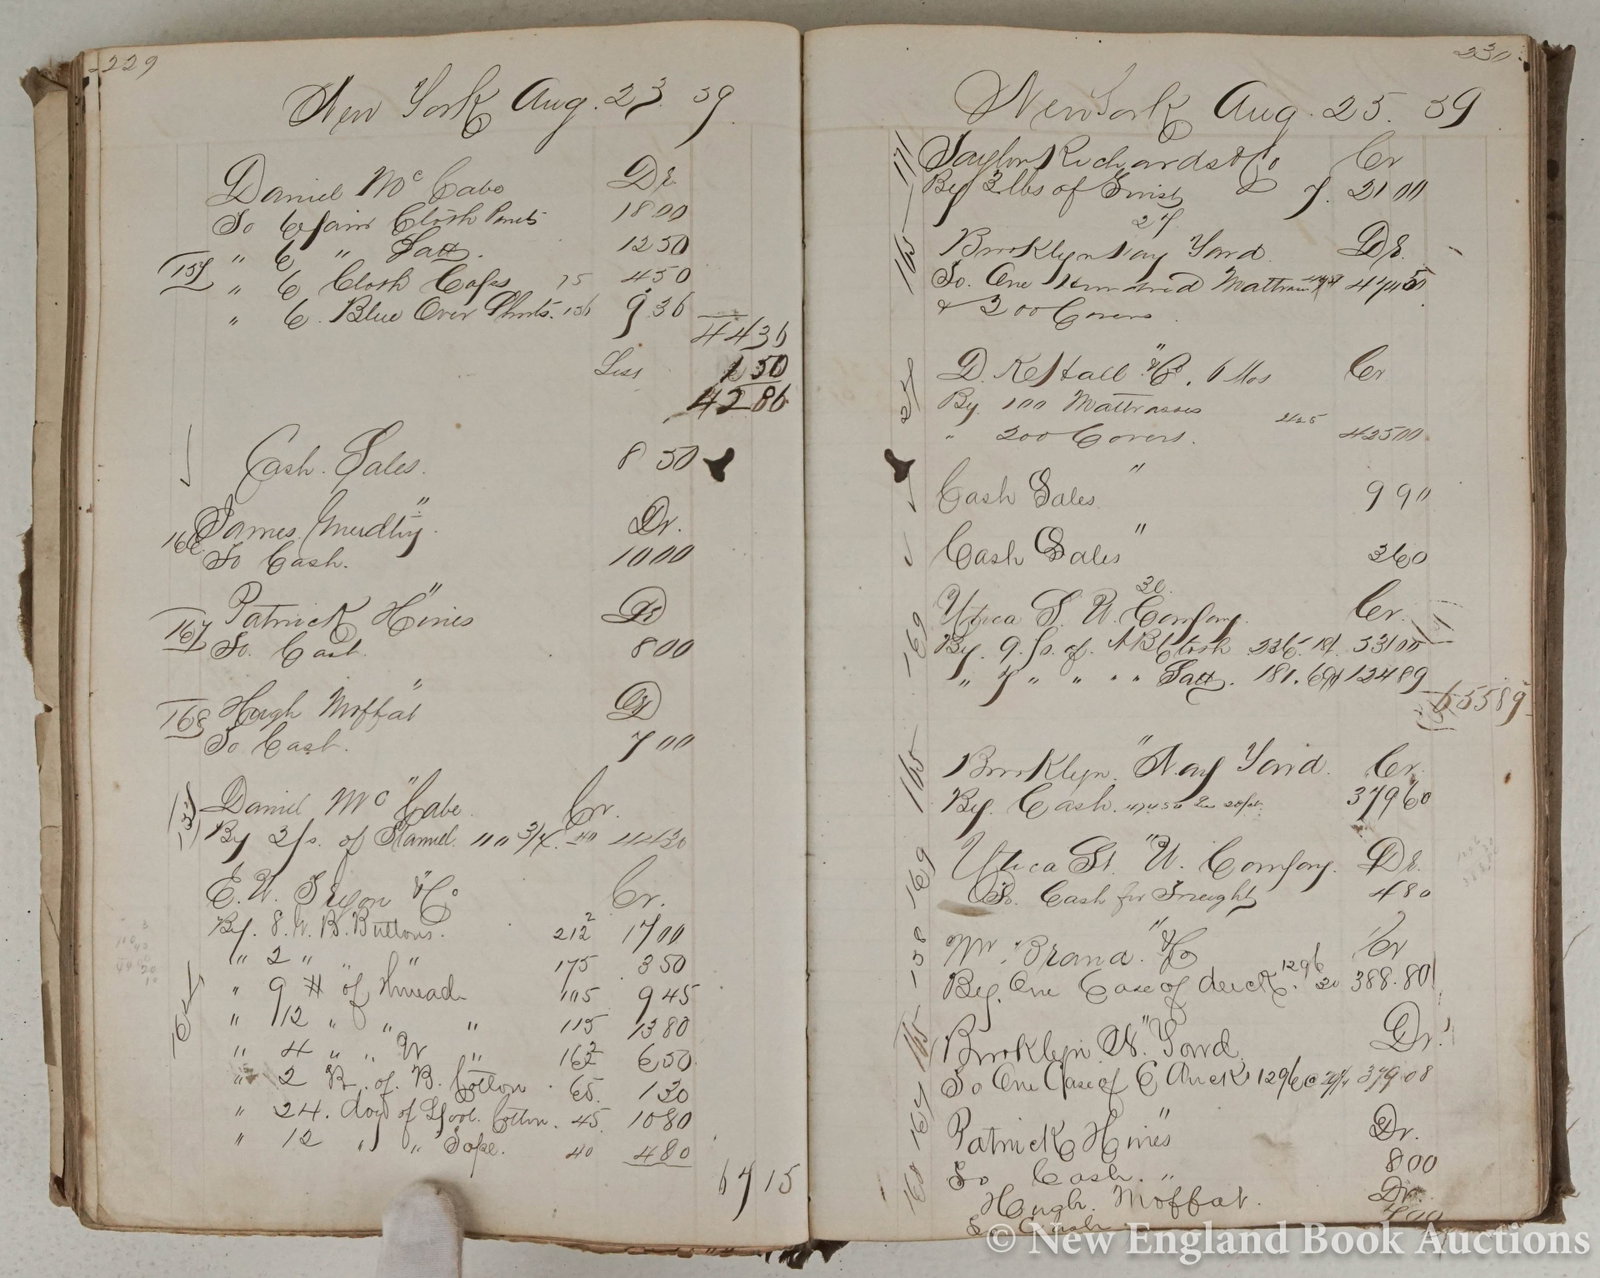 229
New York Aug. 23. 59.
Daniel McCabe Dr
To 6 pair Cloth Pants 1800
157 " 6 " Satt. 1250
" 6 Cloth Caps 75 450
" 6. Blue Over Shirts. 156 9.36
4436
Less 150
4286
Cash. Sales. 8 50
James " Dr.
166 To Cash. 1000
Patrick " Hines Dr
167 To. Cash. 800
Hugh Moffat " Dr
168 To Cash. 700
Daniel Mc " Cabe. Cr.
By 2 ps. of Flannel. 110 3/4. 40
E. W. & Co Cr.
By. 8. W. B. Buttons. 212 1700
" 2 " " " 175 350
" 9 # of Thread 105 945
" 12 " " " 115 1380
" 4 " " W " 162 650
" 2 B. of. B. Cotton. 65. 130
" 24. doz of Spool. Cotton. 45. 1080
" 12 " " Tape. 40 480
6715
230
New York Aug. 25. 59
171 Taylor Richards & Co Cr
By 3 lbs of Twist 7. 2100
27.
165 Brooklyn Navy Yard. Dr.
To. One Hundred Mattrass 47450
& 200 Covers.
D. Kestall " & Co. 6 Mos Cr
By 100 Mattrasses
" 200 Covers. 425 42500
Cash Sales " 990
Cash Sales " 360
30.
169 Utica S. W. Company. Cr.
By. 9. ps. of. Cloth 53100
" 7 " " " " Satt. 181. 69 12489
65589
165 Brooklyn. " Navy Yard. Cr.
By. Cash. 37960
169 Utica St. " W. Company. Dr.
To. Cash for Freight 480
158 Wm. Brand " & Co Cr
By. One Case of duck. 1296 30 388.80
165 Brooklyn. N. " Yard. Dr.
To One Case of C Duck 1296 379.08
167 Patrick Hines " Dr.
To Cash. 800
168 Hugh. " Moffat. Dr.
To Cash 700
© New England Book Auctions